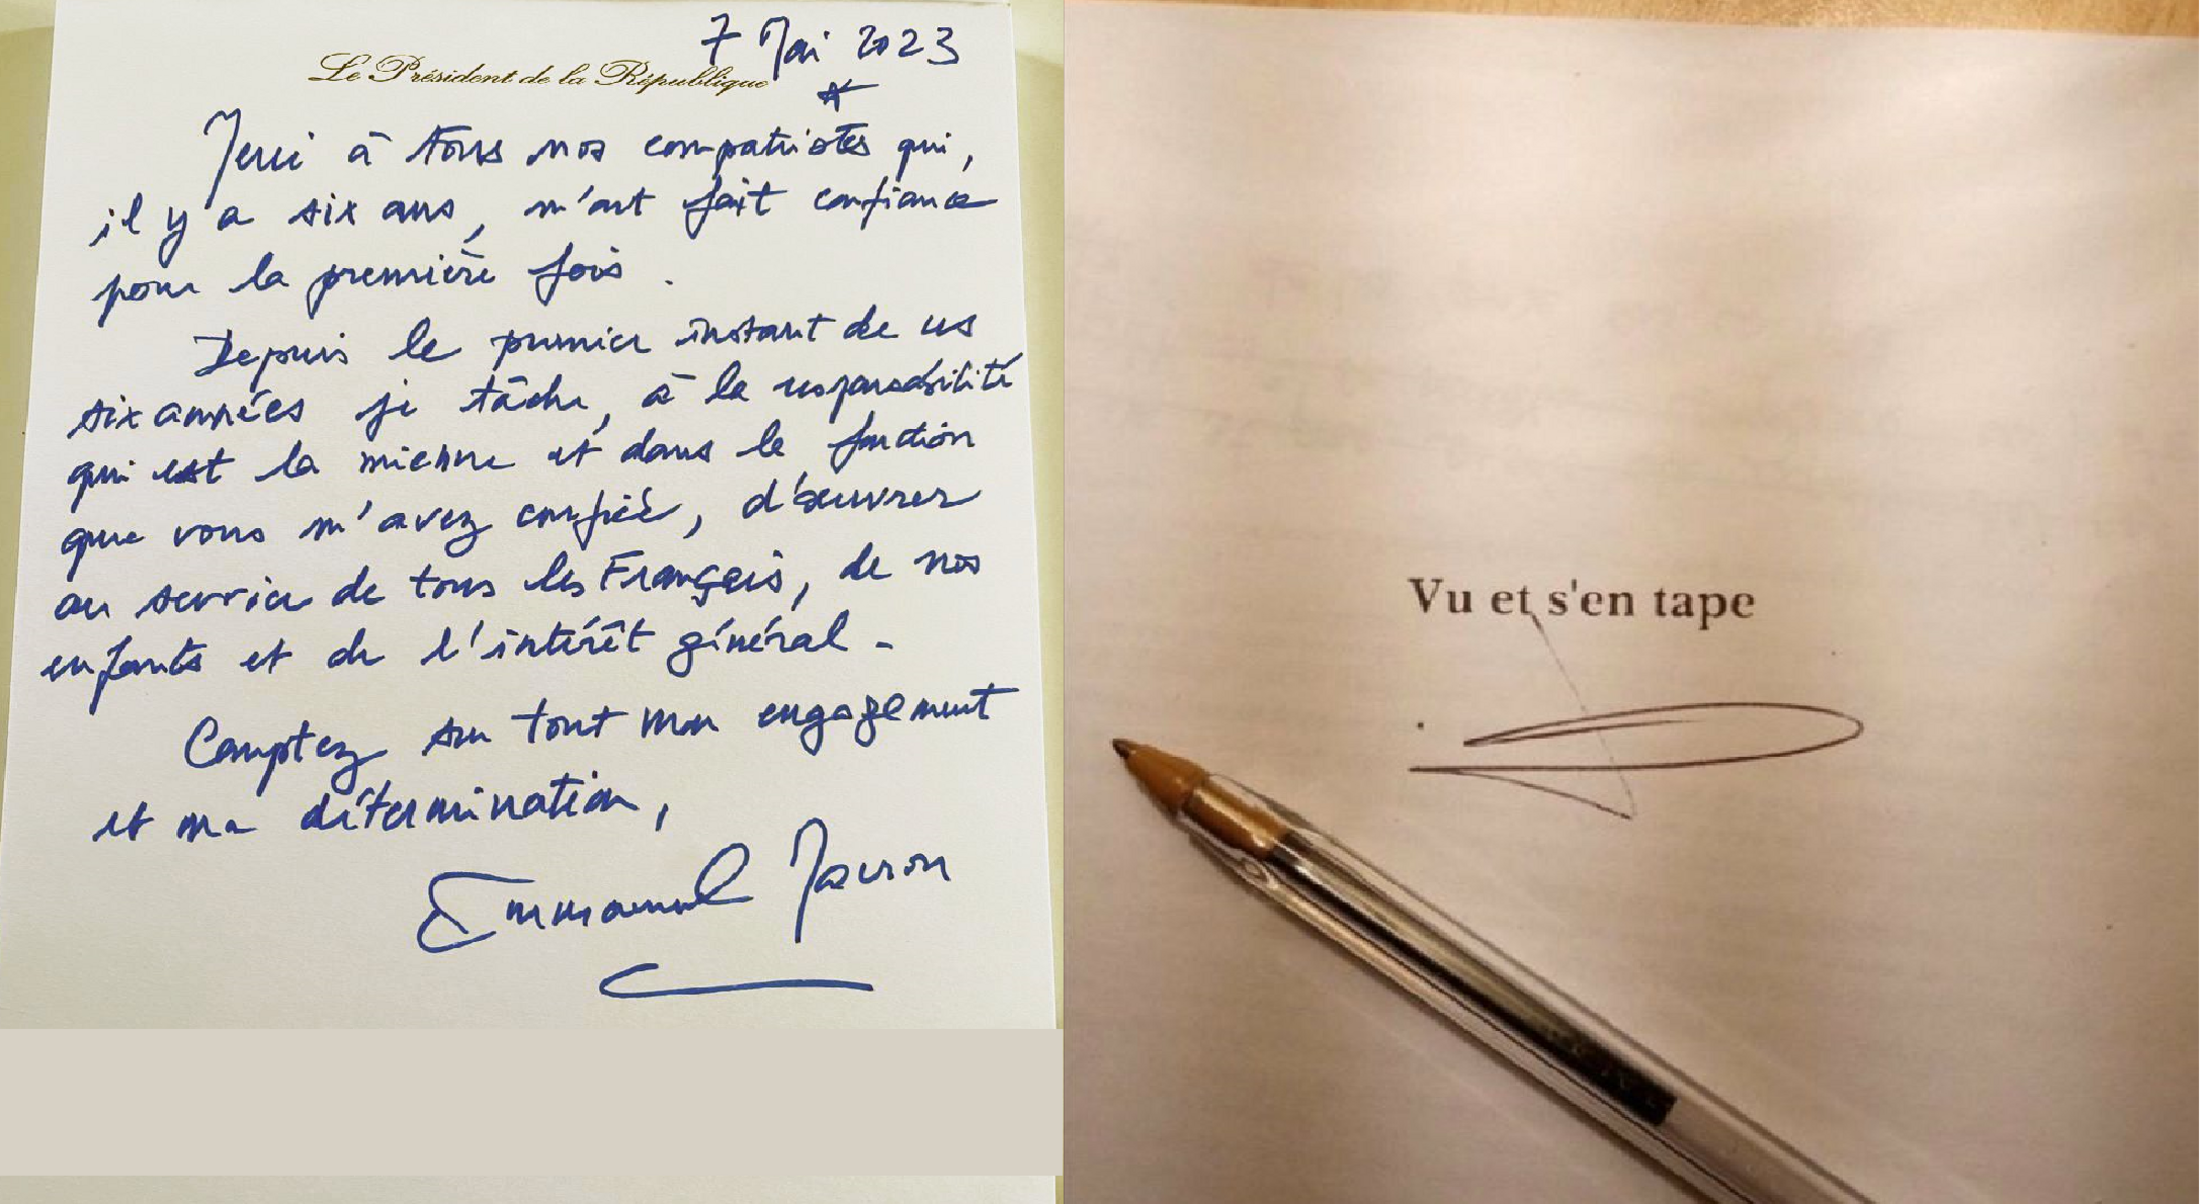 7 Mai 2023
Le Président de la République
Merci à tous nos compatriotes qui,
il y a six ans, m'ont fait confiance
pour la première fois.
Depuis le premier instant de ces
six années je tâche, à la responsabilité
qui est la mienne et dans la fonction
que vous m'avez confiée, d'œuvrer
au service de tous les Français, de nos
enfants et de l'intérêt général.
Comptez sur tout mon engagement
et ma détermination,
Emmanuel Macron
Vu et s'en tape